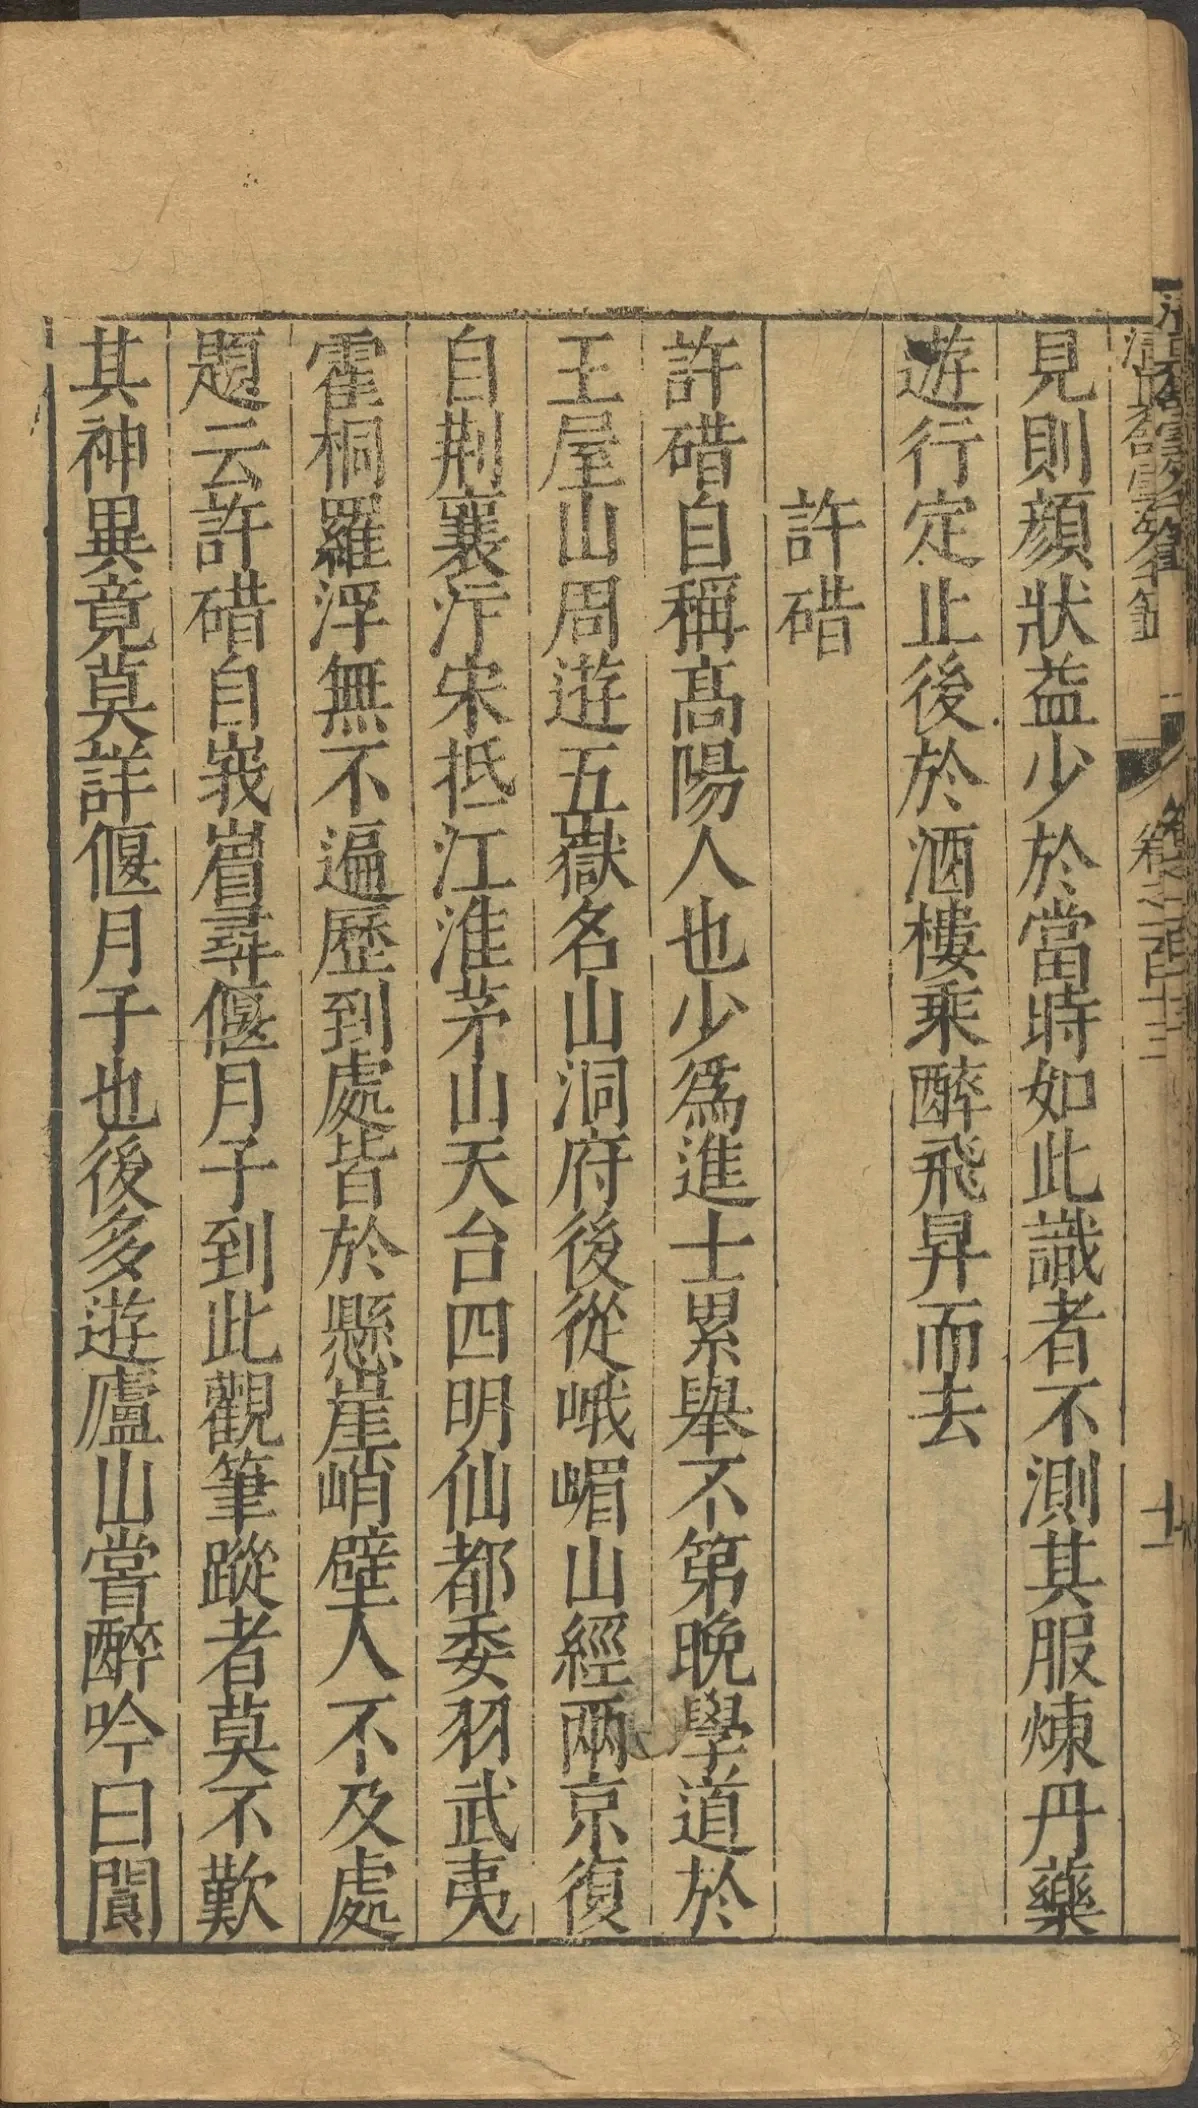 見則顔狀益少於當時如此識者不測其服煉丹藥
遊行定止後於酒樓乘醉飛昇而去
許碏
許碏自稱髙陽人也少爲進士累舉不第晩學道於
王屋山周遊五嶽名山洞府後從峨嵋山經兩京復
自荆襄汴宋抵江淮茅山天台四明仙都委羽武夷
霍桐羅浮無不遍歷到處皆於懸崖峭壁人不及處
題云許碏自峩嵋尋偃月子到此觀筆蹤者莫不歎
其神異竟莫詳偃月子也後多遊廬山嘗醉吟曰閬